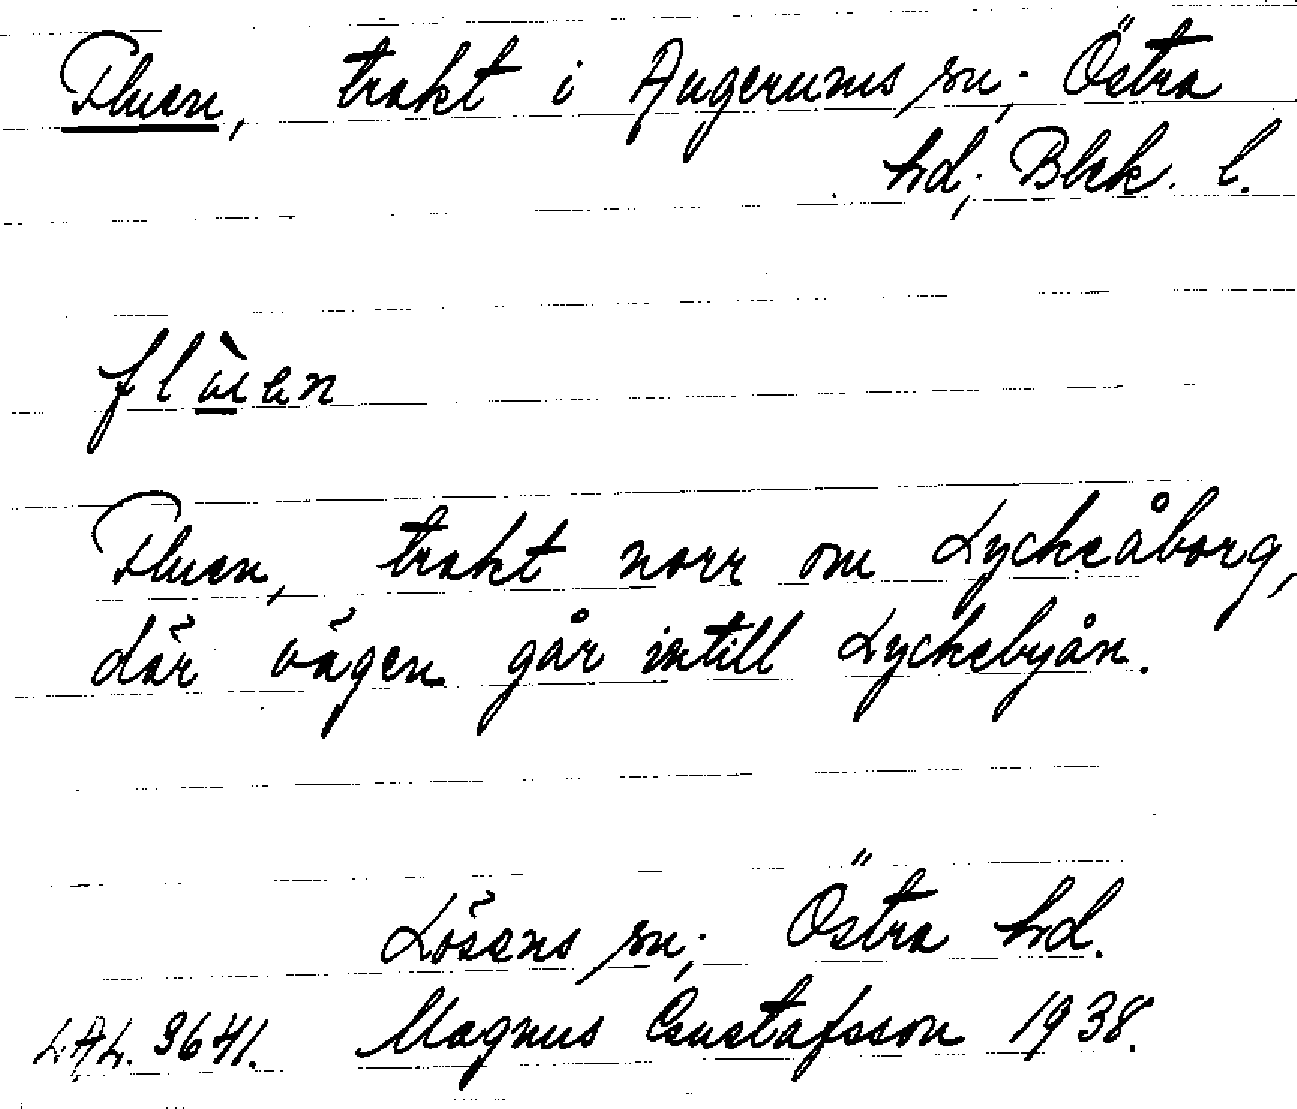 Fluen, trakt i Augerums sn; Östra
hd; Blek. l.
flùen
Fluen, trakt norr om Lyckeåborg,
där vägen går intill Lyckebyån.
Lösens sn; Östra hd.
LAL. 9641. Magnus Gustafsson 1938.